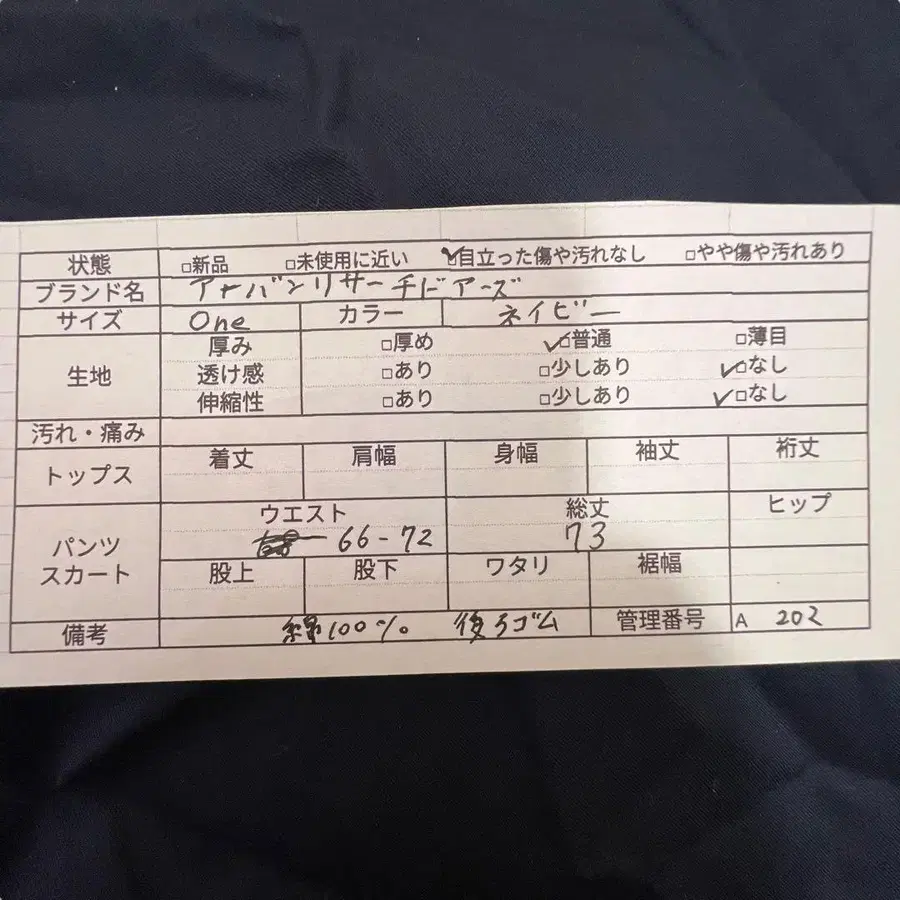 状態 □新品 □未使用に近い ☑目立った傷や汚れなし □やや傷や汚れあり
ブランド名 アーバンリサーチドアーズ
サイズ One カラー ネイビー
生地 厚み □厚め ☑普通 □薄目
透け感 □あり □少しあり ☑なし
伸縮性 □あり □少しあり ☑なし
汚れ・痛み
トップス 着丈 肩幅 身幅 袖丈 裄丈
パンツ スカート ウエスト 総丈 ヒップ
66-72 73
股上 股下 ワタリ 裾幅
備考 綿100% 後ろゴム 管理番号 A 202